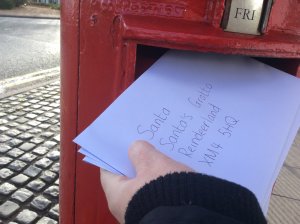 FRI
Santa
Santa's Grotto
Reindeerland
XM4 5HQ